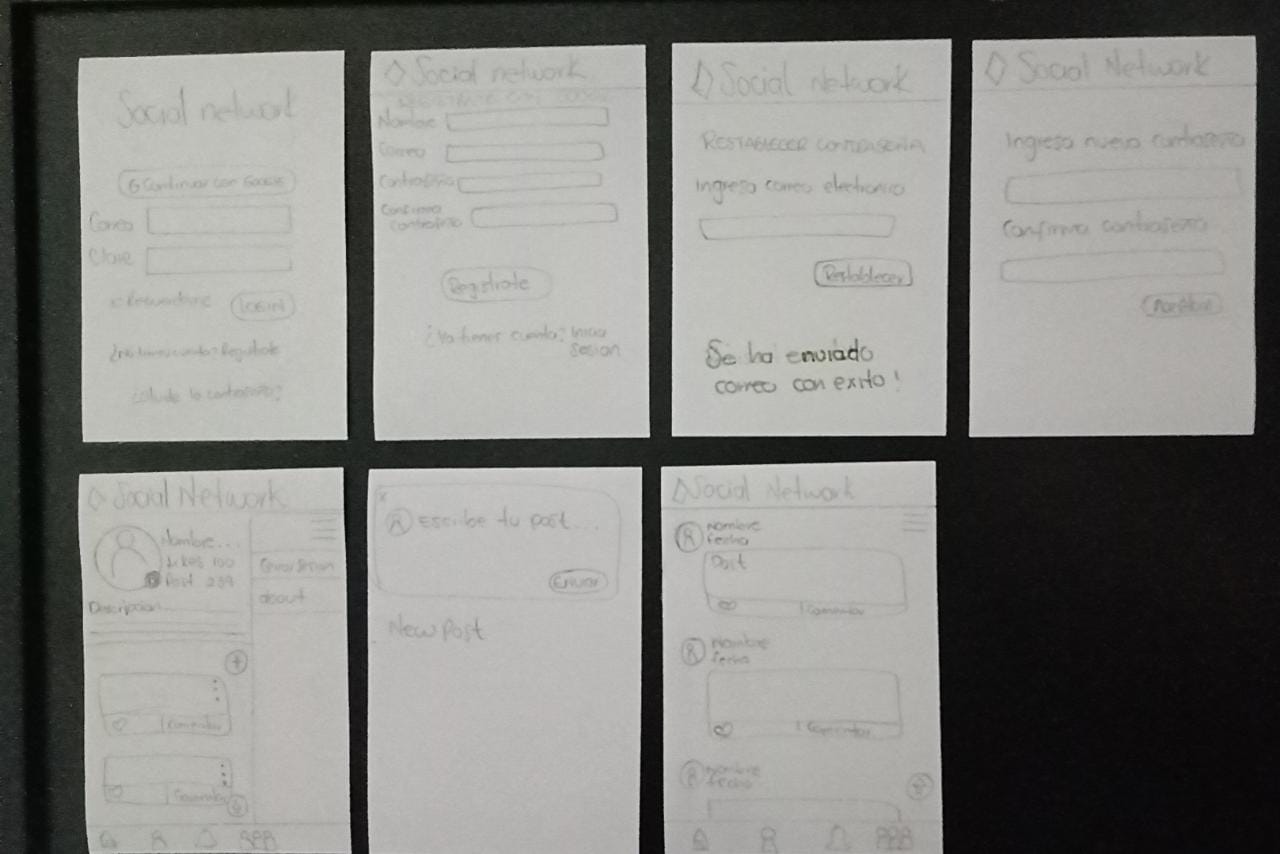 Social network
G Continuar con Google
Correo
Clave
Recuerdame
LOGIN
¿No tienes cuenta? Registrate
¿Olvide la contraseña?
Social network
Nombre
Correo
Contraseña
Confirma
contraseña
Registrate
¿Ya tienes cuenta? Inicia
Sesion
Social Network
RESTABLECER CONTRASEÑA
Ingresa correo electronico
Restablecer
Se ha enviado
correo con exito!
Social Network
Ingresa nueva contraseña
Confirma contraseña
Social Network
Nombre...
Likes 100
Post 239
Descripcion
Cerrar Sesion
about
Comentar
Comentar
x
Escribe tu post...
Enviar
New Post
Social Network
Nombre
fecha
Post
Comentar
Nombre
fecha
Comentar
Nombre
fecha